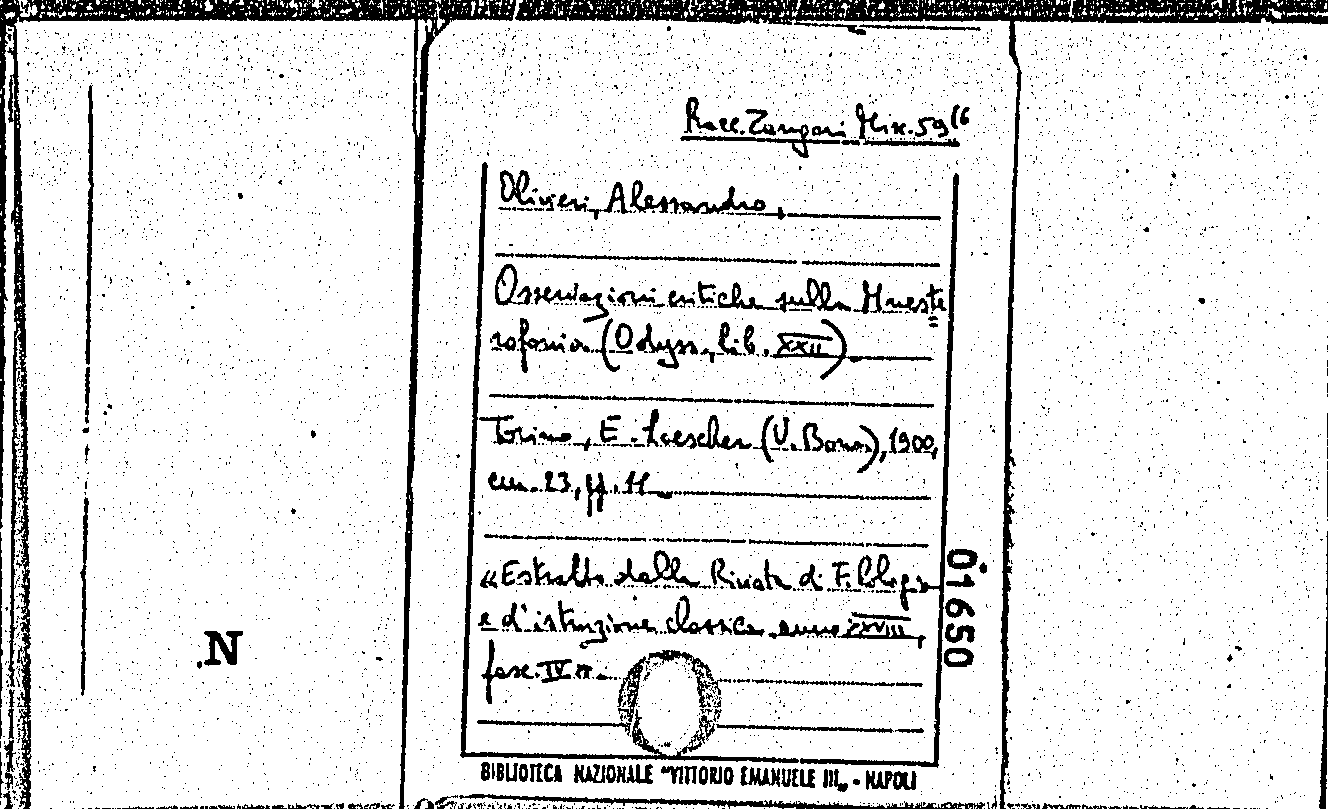 Racc. Zangari Misc. 59(6
Olivieri, Alessandro,
Osservazioni critiche sulla Mneste=
rofonia (Odyss., lib. XXII).
Torino, E. Loescher (V. Bona), 1900,
cm. 23, pp. 11.
«Estratto dalla Rivista di Filologia
e d'istruzione classica anno XXVIII,
fasc. IV».
01650
N
BIBLIOTECA NAZIONALE "VITTORIO EMANUELE III„ - NAPOLI